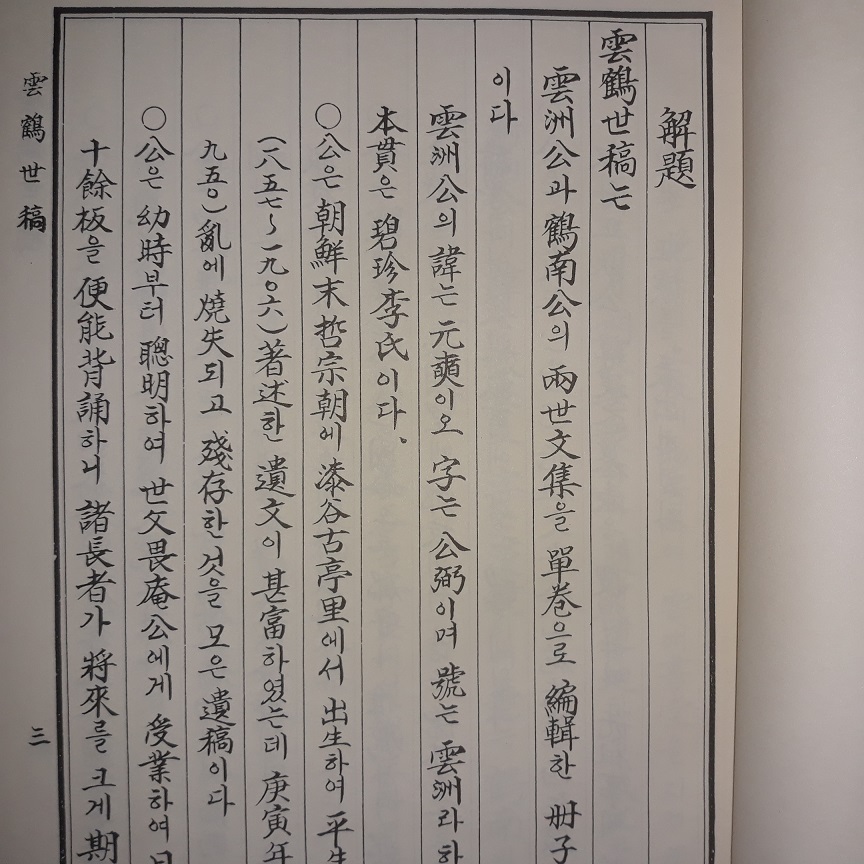 解題
雲鶴世稿는
雲洲公과 鶴南公의 兩世文集을 單卷으로 編輯한 冊子
이다
雲洲公의 諱는 元奭이오 字는 公弼이며 號는 雲洲라 하
本貫은 碧珍李氏이다.
○公은 朝鮮末 哲宗朝에 漆谷古亭里에서 出生하여 平生
(一八五七~一九〇六)著述한 遺文이 甚富하였는데 庚寅年
九五〇)亂에 燒失되고 殘存한 것을 모은 遺稿이다
○公은 幼時부터 聰明하여 世父畏庵公에게 受業하여 日
十餘板을 便能背誦하니 諸長者가 將來를 크게 期
雲鶴世稿
三